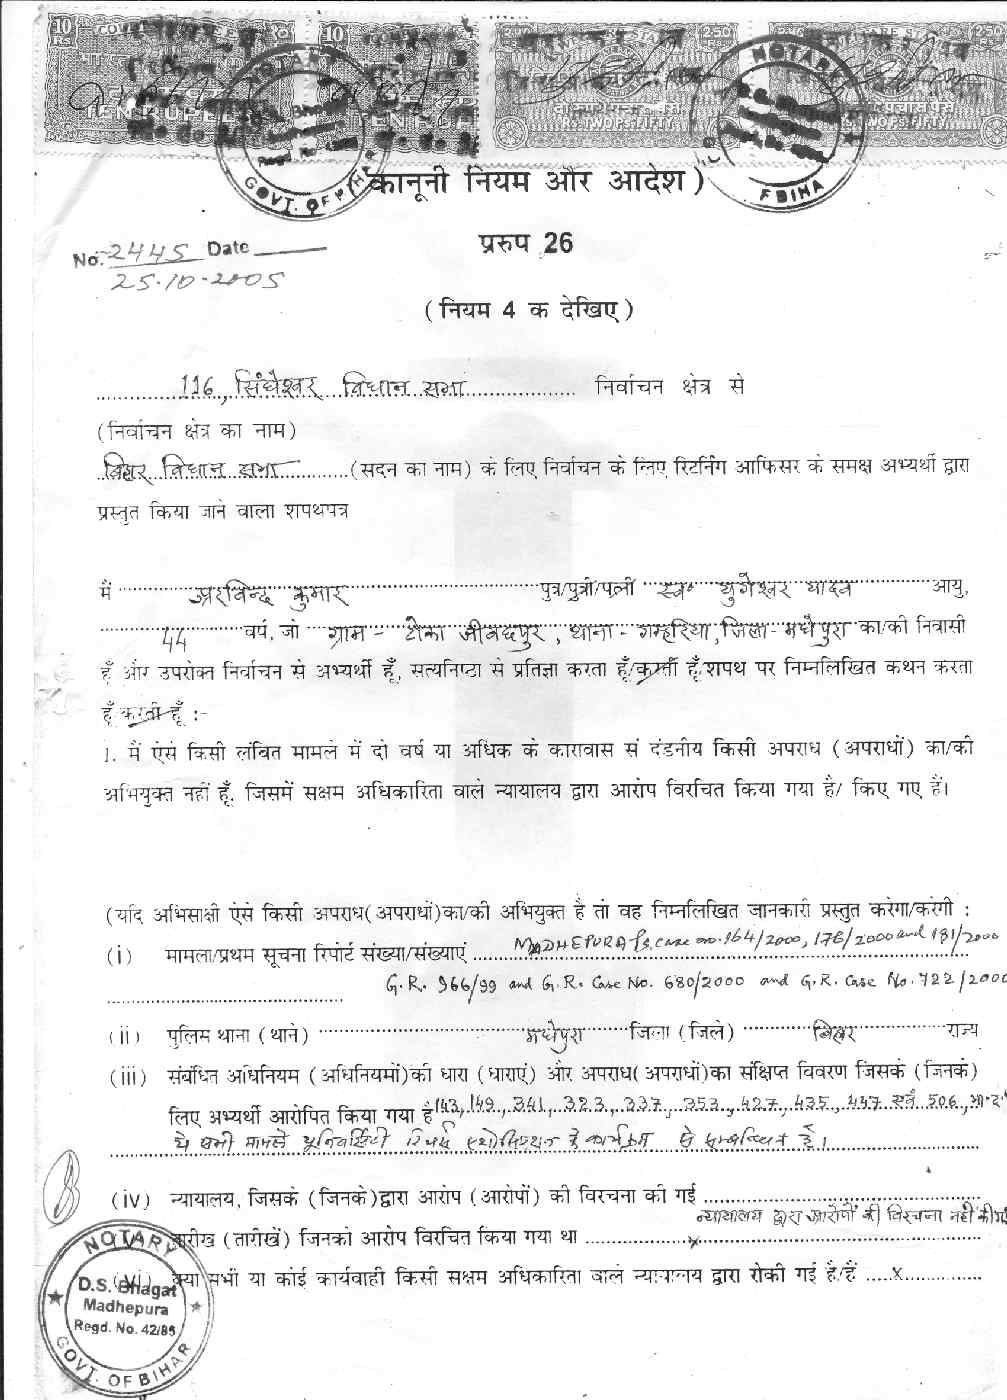 10
Rs
10
2.50
2.50
TEN RUPEES
RS. TWO PS. FIFTY
RS. TWO PS. FIFTY
NOTARY
GOVT. OF BIHAR
NOTARY
(कानूनी नियम और आदेश)
No. 2445 Date
25.10.2005
प्ररुप 26
(नियम 4 क देखिए)
116, सिंघेश्वर विधान सभा निर्वाचन क्षेत्र से
(निर्वाचन क्षेत्र का नाम)
बिहार विधान सभा (सदन का नाम) के लिए निर्वाचन के लिए रिटर्निंग आफिसर के समक्ष अभ्यर्थी द्वारा
प्रस्तुत किया जाने वाला शपथपत्र
मैं अरविन्द कुमार पुत्र/पुत्री/पत्नी स्व॰ युगेश्वर यादव आयु,
44 वर्ष, जो ग्राम - टोका जीवछपुर, थाना - गम्हरिया, जिला - मधेपुरा का/की निवासी
हूँ और उपरोक्त निर्वाचन से अभ्यर्थी हूँ, सत्यनिष्ठा से प्रतिज्ञा करता हूँ/करती हूँ/शपथ पर निम्नलिखित कथन करता
हूँ करती हूँ :-
1. मैं ऐसे किसी लंबित मामले में दो वर्ष या अधिक के कारावास से दंडनीय किसी अपराध (अपराधों) का/की
अभियुक्त नहीं हूँ, जिसमें सक्षम अधिकारिता वाले न्यायालय द्वारा आरोप विरचित किया गया है/ किए गए हैं।
(यदि अभिसाक्षी ऐसे किसी अपराध(अपराधों)का/की अभियुक्त है तो वह निम्नलिखित जानकारी प्रस्तुत करेगा/करेगी :
(i) मामला/प्रथम सूचना रिपोर्ट संख्या/संख्याएं MADHEPURA P.S. case no. 164/2000, 176/2000 and 181/2000
G.R. 966/99 and G.R. Case No. 680/2000 and G.R. Case No. 722/2000
(ii) पुलिस थाना (थाने) मधेपुरा जिला (जिले) बिहार राज्य
(iii) संबंधित अधिनियम (अधिनियमों)की धारा (धाराएं) और अपराध(अपराधों)का संक्षिप्त विवरण जिसके (जिनके)
लिए अभ्यर्थी आरोपित किया गया है 143, 149, 341, 323, 337, 353, 427, 435, 447 एवं 506, भा.द.
ये सभी मामले यूनिवर्सिटी रिसर्च एशोसिएशन के कार्यक्रम से सम्बन्धित है।
(iv) न्यायालय, जिसके (जिनके)द्वारा आरोप (आरोपों) की विरचना की गई
न्यायालय द्वारा आरोपों की विरचना नहीं की गई
तारीख (तारीखें) जिनको आरोप विरचित किया गया था x
(vi) क्या सभी या कोई कार्यवाही किसी सक्षम अधिकारिता वाले न्यायालय द्वारा रोकी गई है/हैं x
NOTARY
D.S. Bhagat
Madhepura
Regd. No. 42/85
GOVT. OF BIHAR